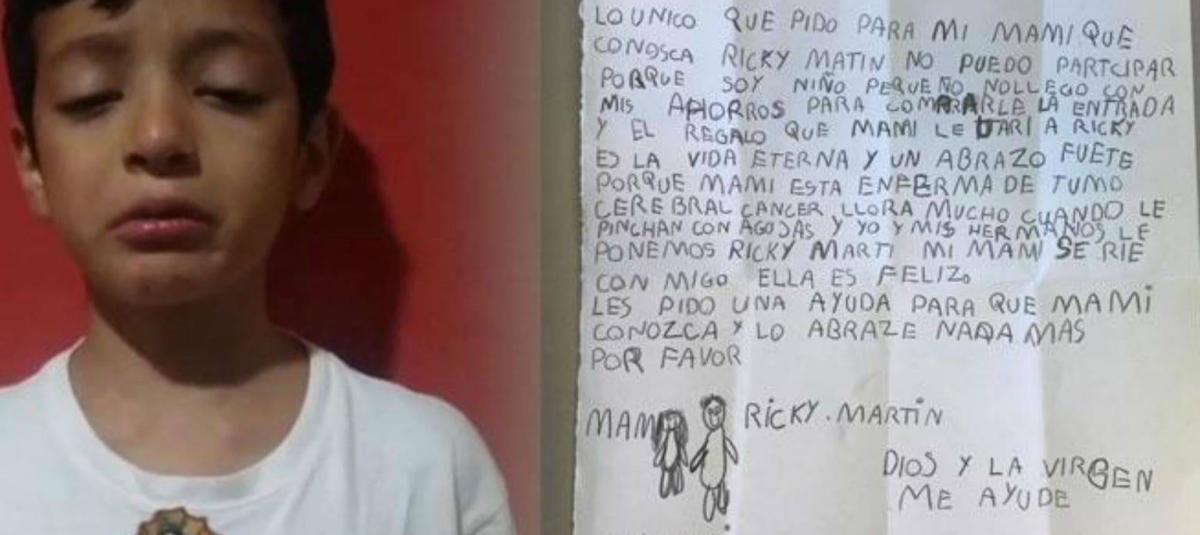 LO UNICO QUE PIDO PARA MI MAMI QUE
CONOSCA RICKY MATIN NO PUEDO PARTCIPAR
PORQUE SOY NIÑO PEQUEÑO NOLLEGO CON
MIS AHORROS PARA COMPRARLE LA ENTRADA
Y EL REGALO QUE MAMI LE DARI A RICKY
ES LA VIDA ETERNA Y UN ABRAZO FUETE
PORQUE MAMI ESTA ENFERMA DE TUMO
CEREBRAL CANCER LLORA MUCHO CUANDO LE
PINCHAN CON AGOJAS Y YO Y MIS HERMANOS LE
PONEMOS RICKY MARTI MI MAMI SE RIE
CON MIGO ELLA ES FELIZ.
LES PIDO UNA AYUDA PARA QUE MAMI
CONOZCA Y LO ABRAZE NADA MAS
POR FAVOR
MAMI RICKY.MARTIN
DIOS Y LA VIRGEN
ME AYUDE